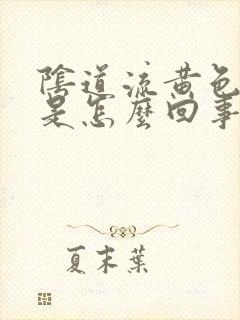 陰道流黃色
是怎麼回事
夏末葉